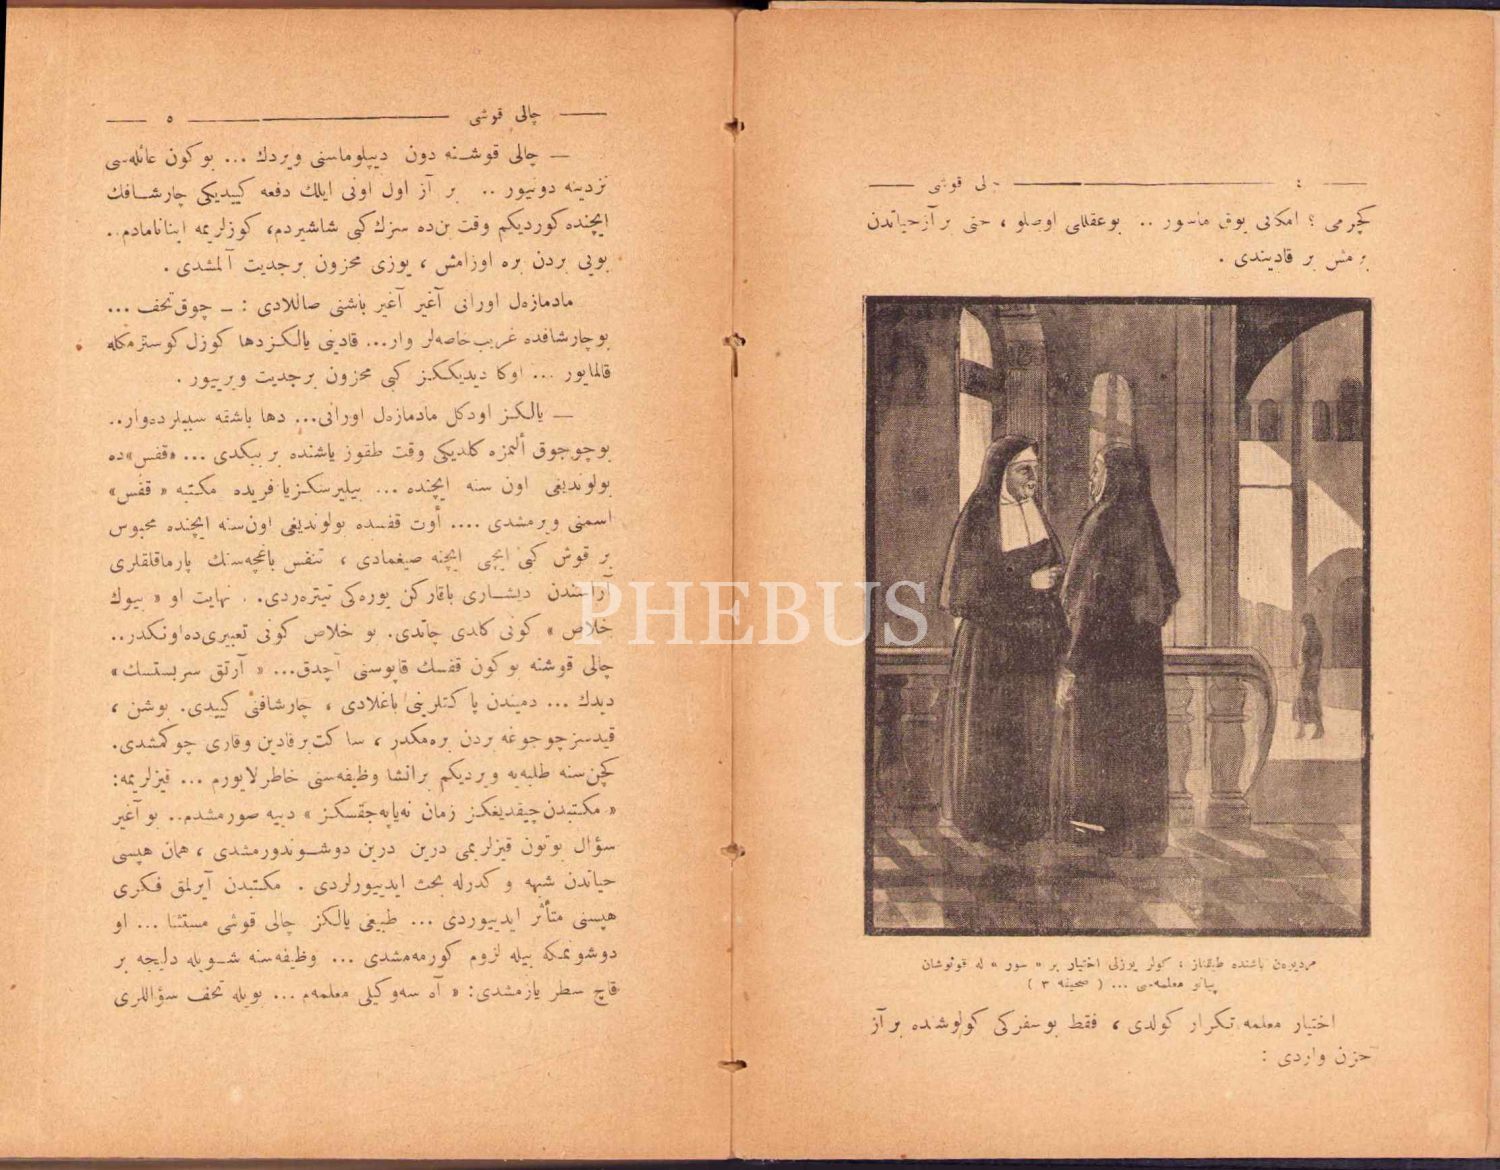 ٤ چالی قوشی
کچرمی ؟ امکانی یوق ماسور .. بوعقللی اوصلو ، حتی بر آز حیاتدن
بر قادیندی .
مردیوه‌ن باشنده طیقناز ، کولر یوزلی اختیار بر « سور » له قونوشان
پیانو معلمه‌سی ... ( صحیفه ٣ )
اختیار معلمه تکرار کولدی ، فقط بو سفرکی کولوشده بر آز
حزن واردی :
چالی قوشی ٥
— چالی قوشنه دون دیپلوماسنی ویردك ... بوکون عائله‌سی
نزدینه دونیور .. بر آز اول اونی ایلك دفعه کییدیکی چارشافك
ایچنده کوردیکم وقت بن‌ده سزك کبی شاشیردم، کوزلریمه اینانامادم..
بویی بردن بره اوزامش ، یوزی محزون برجدیت آلمشدی .
مادمازه‌ل اورانی آغیر آغیر باشنی صاللادی : — چوق تحف ...
بو چارشافده غریب خاصه‌لر وار... قادینی یالکزدها کوزل کوسترمکله
قالمایور ... اوکا دیدیککز کبی محزون برجدیت ویرییور .
— یالکز اودکل مادمازه‌ل اورانی... دها باشقه سببلرده‌وار..
بوچوجوق ألمزه کلدیکی وقت طقوز یاشنده بر ببکدی ... «قفس»ده
بولوندیغی اون سنه ایچنده ... بیلیرسکزیا فریده مکتبه « قفس»
اسمنی ویرمشدی .... أوت قفسده بولوندیغی اون‌سنه ایچنده محبوس
بر قوش کبی ایچی ایچنه صیغمادی ، تنفس باغچه‌سنك پارماقلقلری
آراسندن دیشاری باقارکن یوره‌کی تیتره‌ردی. . نهایت او « بیوك
خلاص » کونی کلدی چاتدی. بو خلاص کونی تعبیری‌ده‌اونکدر..
چالی قوشنه بوکون قفسك قاپوسنی آچدق... « آرتق سربستسك»
دیدك ... دمیندن پاکتلرینی باغلادی ، چارشافنی کییدی. بوشن ،
قیدسز چوجوغه بردن بره‌مکدر ، ساکت برقادین وقاری چوکمشدی.
کچن‌سنه طلبه‌یه ویردیکم برانشا وظیفه‌سنی خاطرلایورم ... قیزلریمه:
« مکتبدن چیقدیغکز زمان نه‌یاپه‌جقسکز » دییه صورمشدم.. بو آغیر
سؤال بوتون قیزلریمی درین درین دوشوندورمشدی ، همان هپسی
حیاتدن شبهه و کدرله بحث ایدییورلردی . مکتبدن آیرلمق فکری
هپسنی متأثر ایدییوردی ... طبیعی یالکز چالی قوشی مستثنا ... او
دوشونمکه بیله لزوم کورمه‌مشدی ... وظیفه‌سنه شویله دلیجه بر
قاچ سطر یازمشدی: « آه سه‌وکیلی معلمه‌م ... بویله تحف سؤاللری
PHEBUS